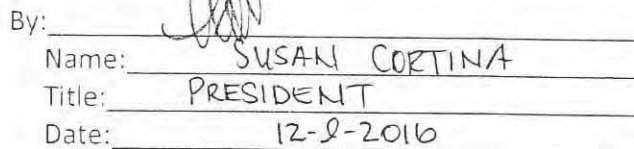 By:
Name: SUSAN CORTINA
Title: PRESIDENT
Date: 12-2-2016